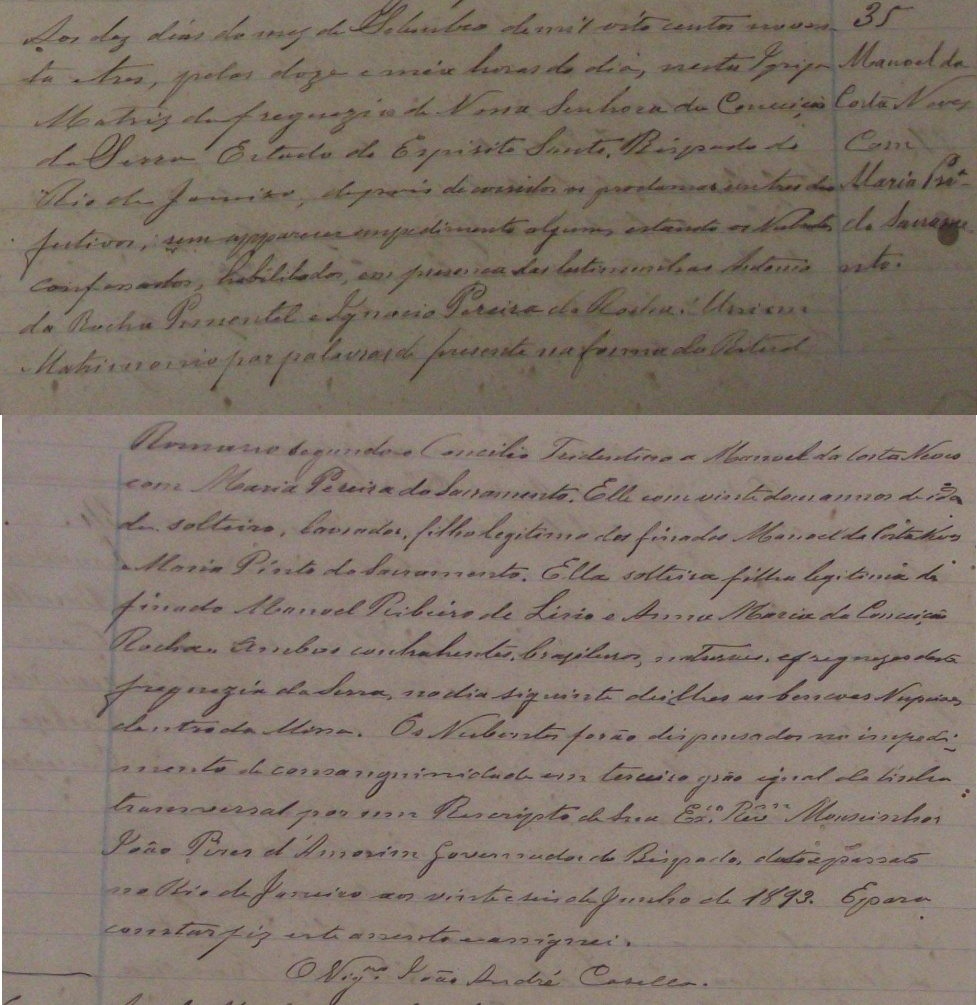 Aos dez dias do mez de Setembro de mil oito centos noven-
ta e tres, pelas doze e meia horas do dia, nesta Igreja
Matriz da freguezia de Nossa Senhora da Conceição
da Serra Estado do Espirito Santo, Bispado do
Rio de Janeiro, depois de corridos os proclamas
sem apparecer impedimento algum, estando os Nubentes
confessados, habilitados, em presença das testemunhas Antonio
da Rocha Pimentel e Ignacio Pereira da Rocha: Uniem
Matrimonio por palavras de presente na forma do Ritual
35
Manoel da
Costa Neves
Com
Maria Pra.
do Sacrame-
nto.
Romano segundo o Concilio Tridentino a Manoel da Costa Neves
com Maria Pereira do Sacramento. Elle com vinte dous annos de ida
de solteiro, lavrador, filho legitimo dos finados Manoel da Costa Neves
e Maria Pinto do Sacramento. Ella solteira filha legitima do
finado Manoel Ribeiro de Lirio e Anna Maria da Conceição
Rocha. Ambos contrahentes, brazileiros, naturaes, e freguezes desta
freguezia da Serra, no dia siguinte dei lhes as bencoes Nupciaes
dentro da Missa. Os Nubentes forão dispensados no impedi-
mento de consanguinidade em terceiro gráo igual da linha
transversal por um Rescripto de Sua Exca. Revma. Monsinhor
João Pires d'Amorim Governador do Bispado, dato e passato
no Rio de Janeiro aos vinte e seis de Junho de 1893. E para
constar fiz este assento e assignei.
O Vigro. João André Casella.